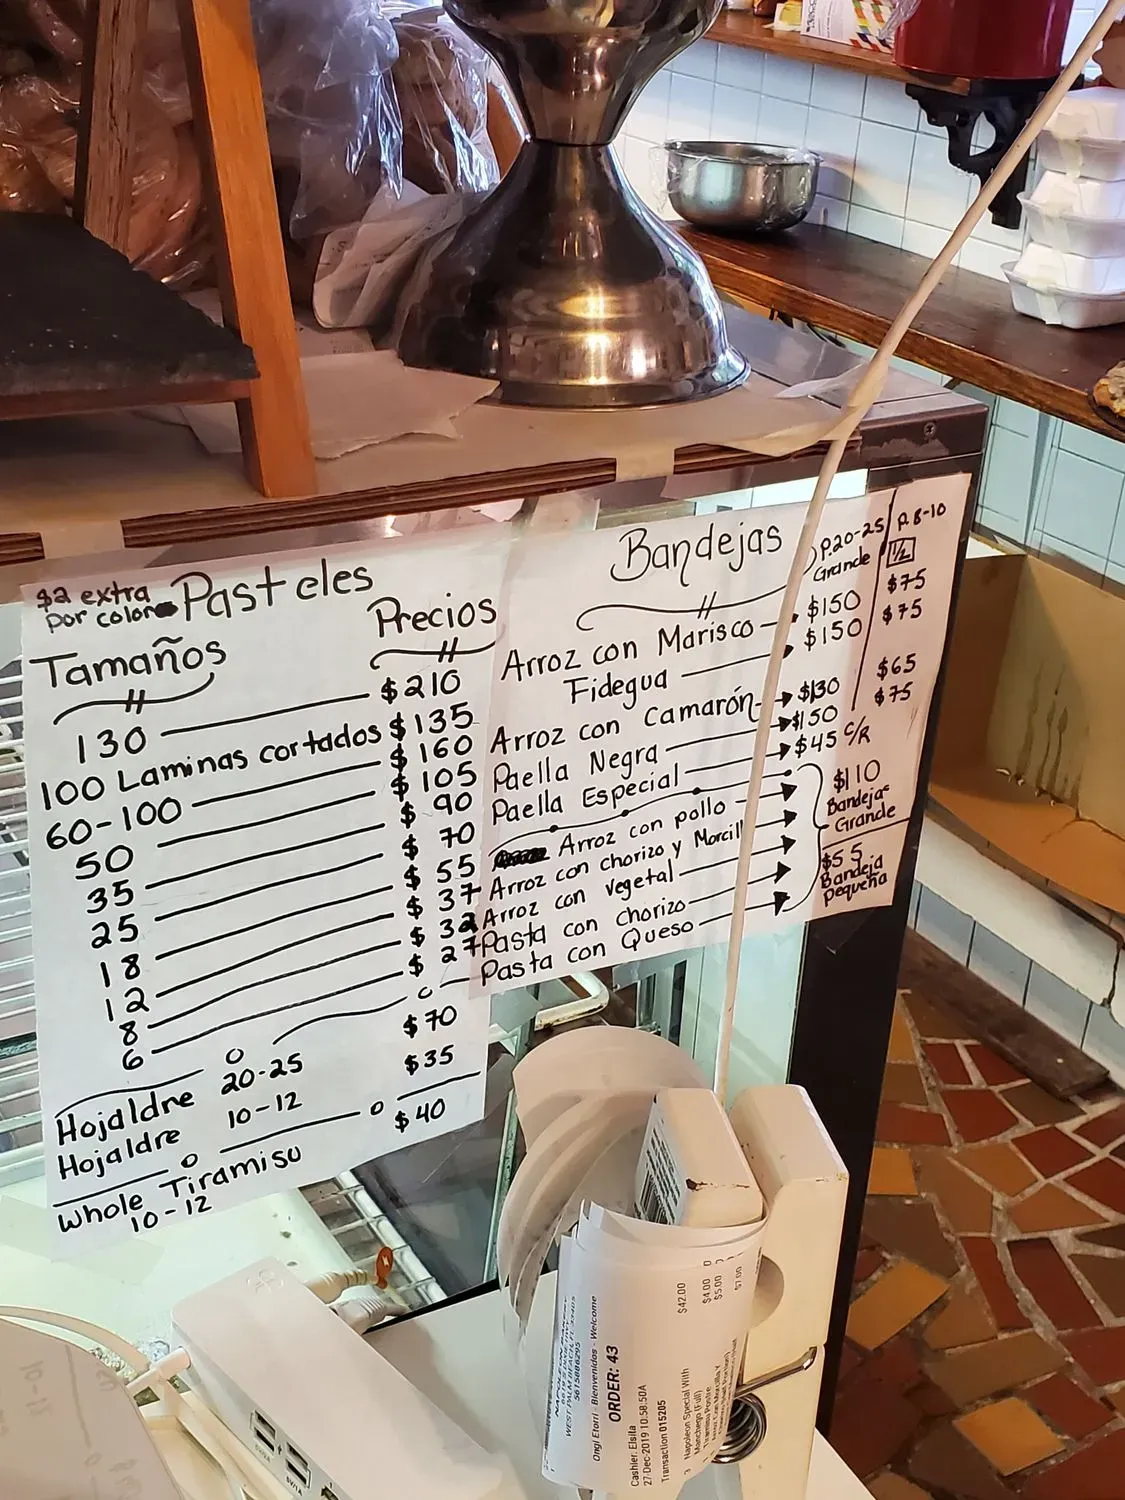 $2 extra
por color
Pasteles
Tamaños
Precios
130 $210
100 Laminas cortados $135
60-100 $160
50 $105
35 $90
25 $70
18 $55
12 $37
8 $32
6 $27
Hojaldre 20-25 $70
Hojaldre 10-12 $35
Whole Tiramisu $40
10-12
Bandejas
P.20-25
Grande
P. 8-10
1/2
Arroz con Marisco $150 $75
Fidegua $150 $75
Arroz con Camarón $130 $65
Paella Negra $150 $75
Paella Especial $45 c/R
Arroz con pollo
Arroz con chorizo y
Arroz con vegetal
Pasta con chorizo
Pasta con Queso
$110
Bandejas
Grande
$55
Bandeja
pequeña
WEST PALM BEACH, FL 33405
5615886295
Ongi Etorri - Bienvenidos - Welcome
ORDER: 43
Cashier: Elsita
27-Dec-2019 10:58:50A
Transaction 015205
3 Napoleon Special With $42.00
Manchego (Full)
1 Tiramisu Postre $4.00
$5.00
$7.00